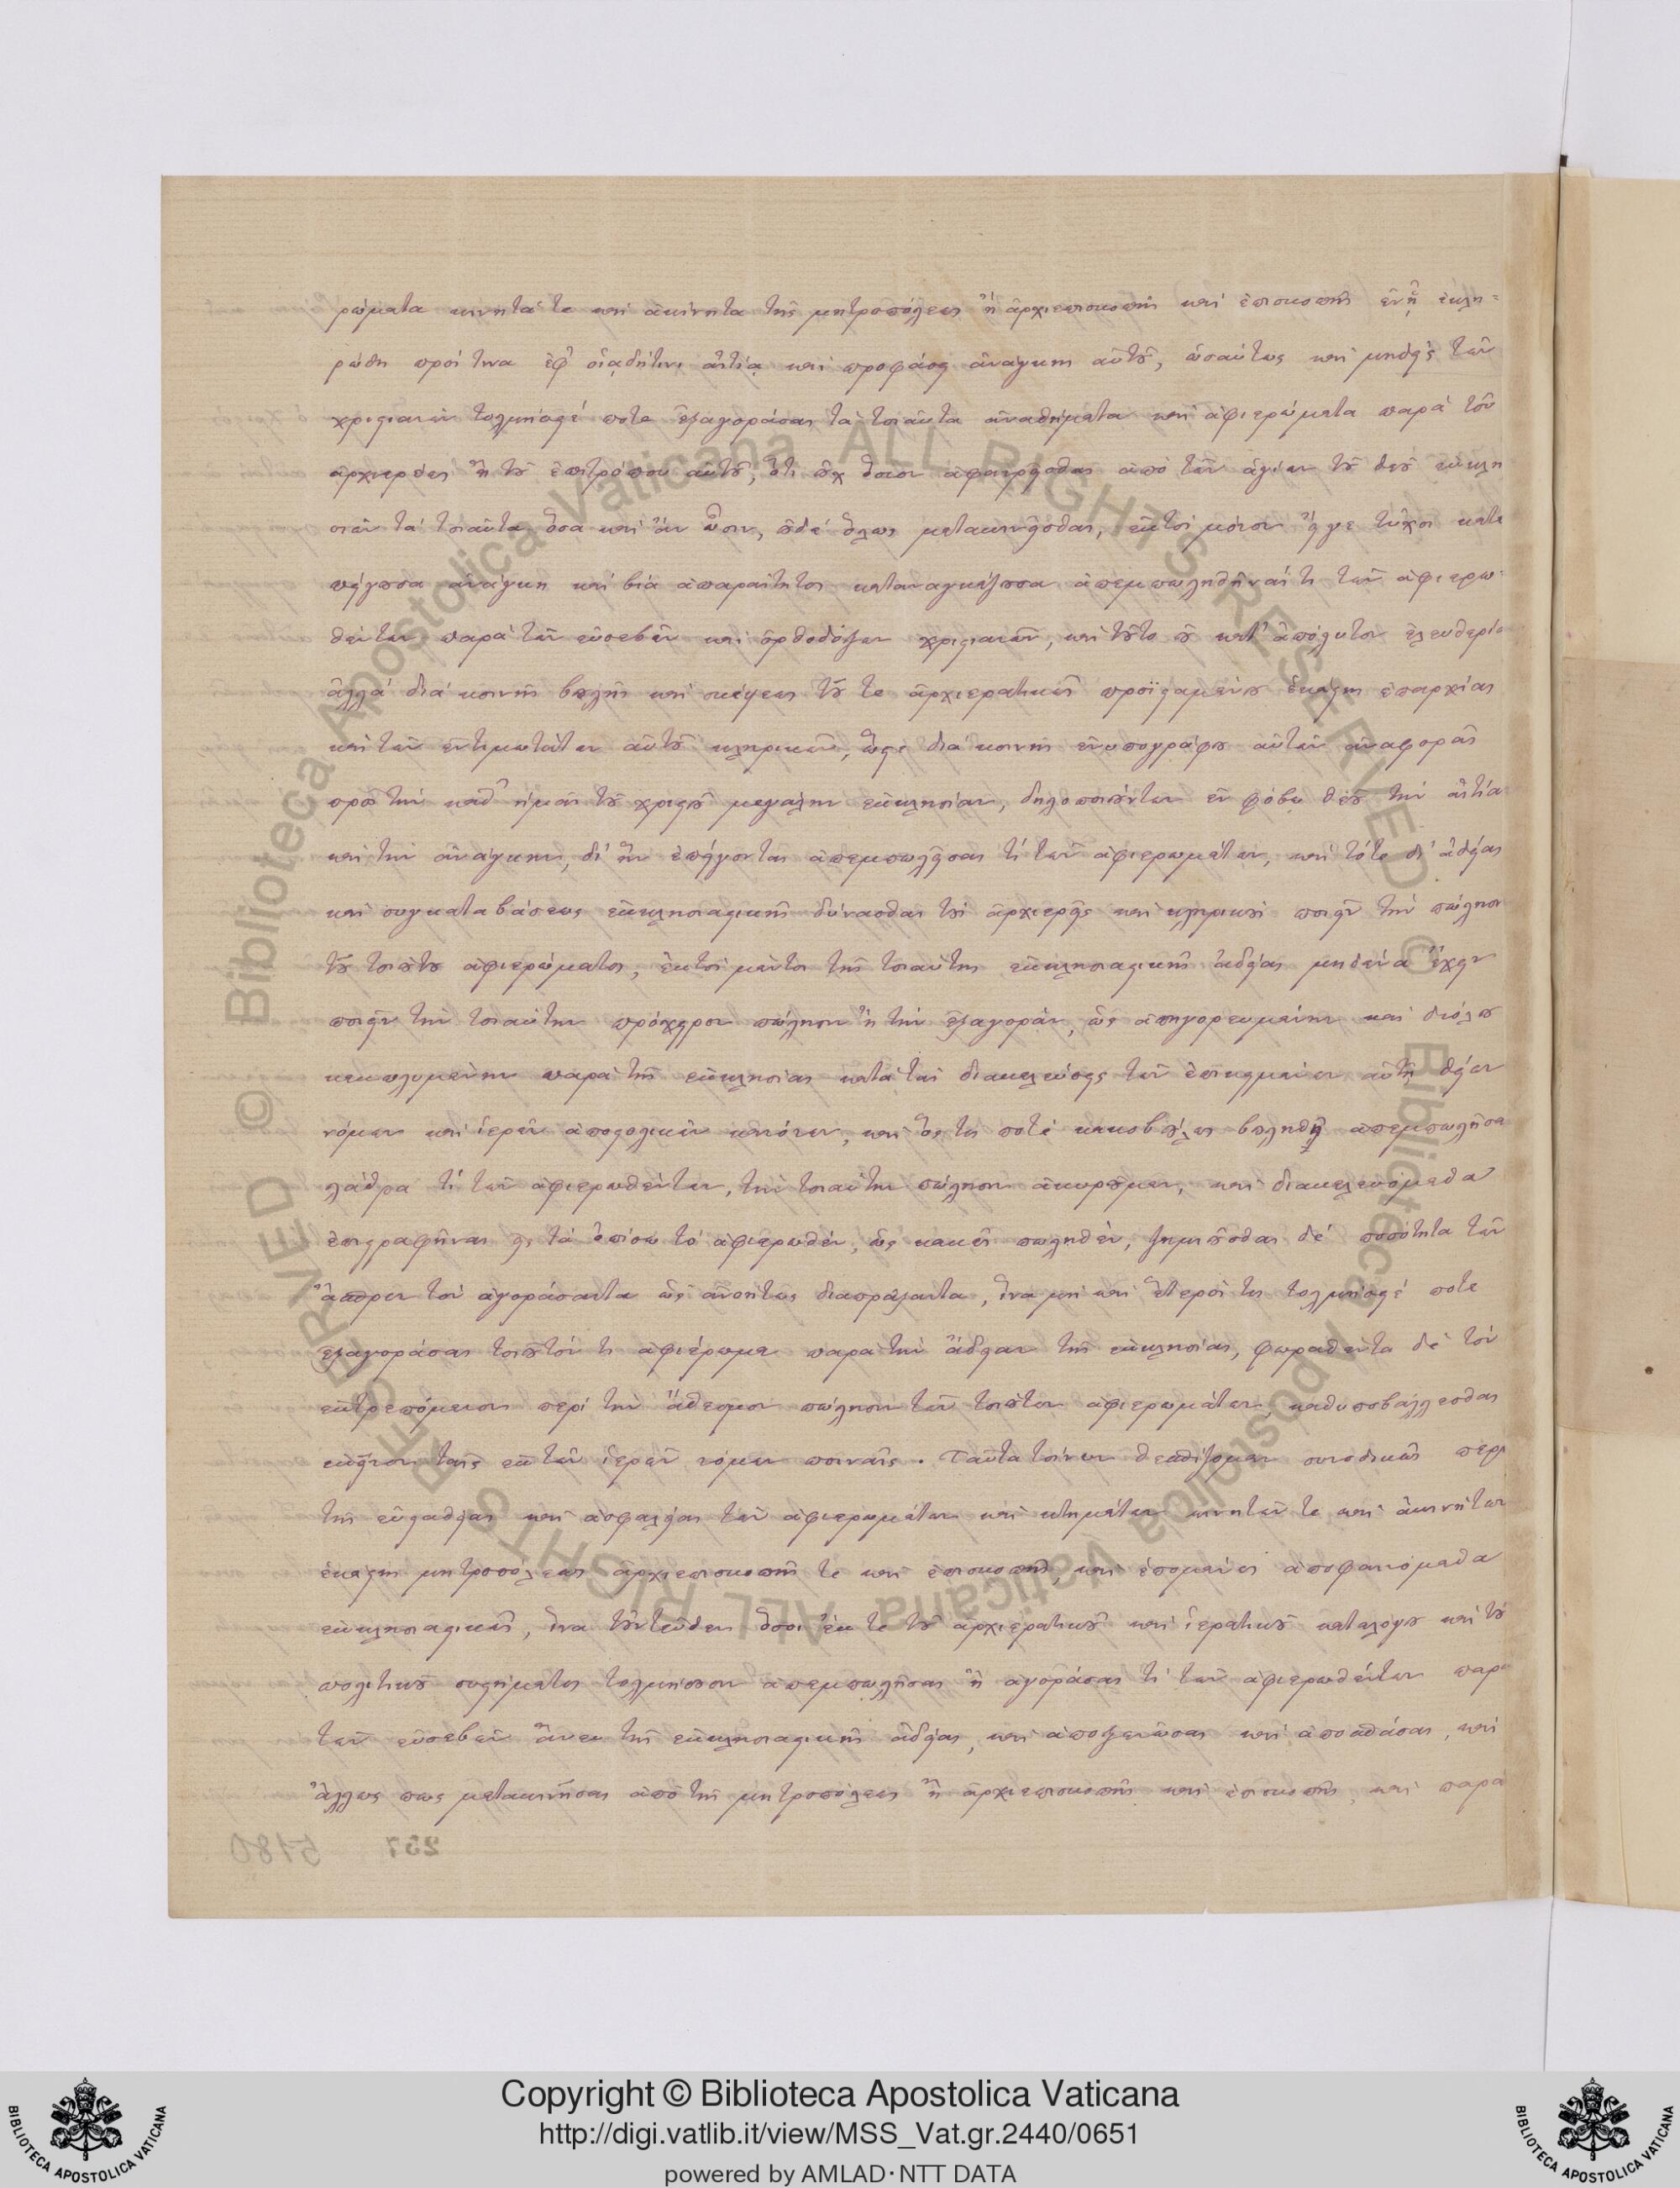 ρώματα κινητά τε καὶ ἀκίνητα τῆς μητροπόλεως ἢ ἀρχιεπισκοπῆς καὶ ἐπισκοπῆς ἐν ᾗ ἐκλη=
ρώθη πρός τινα ἐφ' οἱᾳδήτινι αἰτίᾳ καὶ προφάσει ἀνάγκης αὐτοῦ, ὡσαύτως καὶ μηδεὶς τῶν
χριστιανῶν τολμήσειέ ποτε ἐξαγοράσαι τὰ τοιαῦτα ἀναθήματα καὶ ἀφιερώματα παρὰ τοῦ
ἀρχιερέως ἢ τοῦ ἐπιτρόπου αὐτοῦ, ὅτι οὐχ ὅσιον ἀφαιρεῖσθαι ἀπὸ τῶν ἁγίων τοῦ θεοῦ ἐκκλη
σιῶν τὰ τοιαῦτα ὅσα καὶ ἂν ὦσιν, οὐδὲ ὅλως μετακινεῖσθαι, ἐκτὸς μόνον εἴγε τύχοι κατε
πείγουσα ἀνάγκη καὶ βία ἀπαραίτητος καταναγκάζουσα ἀπεμπωληθῆναί τι τῶν ἀφιερω=
θέντων παρὰ τῶν εὐσεβῶν καὶ ὀρθοδόξων χριστιανῶν, καὶ τοῦτο οὐ κατ' ἀπόλυτον ἐλευθερία
ἀλλὰ διὰ κοινῆς βουλῆς καὶ σκέψεως τοῦ τε ἀρχιερατικῶς προϊσταμένου ἑκάστης ἐπαρχίας
καὶ τῶν ἐντιμωτάτων αὐτοῦ κληρικῶν, ὥστε διὰ κοινῆς ἐνυπογράφου αὐτῶν ἀναφορᾶς
πρὸς τὴν καθ' ἡμᾶς τοῦ χριστοῦ μεγάλην ἐκκλησίαν, δηλοποιούντων ἐν φόβῳ θεοῦ τὴν αἰτία
καὶ τὴν ἀνάγκην, δι' ἣν ἐπείγονται ἀπεμπωλῆσαι τὶ τῶν ἀφιερωμάτων, καὶ τότε δι' ἀδείας
καὶ συγκαταβάσεως ἐκκλησιαστικῆς δύνασθαι τοὺς ἀρχιερεῖς καὶ κληρικοὺς ποιεῖν τὴν πώλησιν
τοῦ τοιούτου ἀφιερώματος, ἐκτὸς μέντοι τῆς τοιαύτης ἐκκλησιαστικῆς ἀδείας μηδένα ἔχειν
ποιεῖν τὴν τοιαύτην πρόχειρον πώλησιν ἢ τὴν ἐξαγοράν, ὡς ἀπηγορευμένην καὶ διόλου
κεκωλυμένην παρὰ τῆς ἐκκλησίας κατὰ τὰς διακελεύσεις τῶν ἐπικειμένων αὐτῇ θείων
νόμων καὶ ἱερῶν ἀποστολικῶν κανόνων, καὶ ὅς τις ποτὲ κακοβούλως βουληθῇ ἀπεμπωλῆσα
λάθρα τὶ τῶν ἀφιερωθέντων, τὴν τοιαύτην πώλησιν ἀκυροῦμεν, καὶ διακελευόμεθα
ἐπιστραφῆναι εἰς τὰ ὀπίσω τὸ ἀφιερωθέν, ὡς κακῶς πωληθέν, ζημιοῦσθαι δὲ ποσότητα τῶν
ἄσπρων τὸν ἀγοράσαντα ὡς ἀνοήτως διαπράξαντα, ἵνα μὴ καὶ ἕτερός τις τολμήσειέ ποτε
ἐξαγοράσαι τοιοῦτόν τι ἀφιέρωμα παρὰ τὴν ἄδειαν τῆς ἐκκλησίας, φωραθέντα δὲ τὸν
ἐκτρεπόμενον περὶ τὴν ἄθεσμον πώλησιν τῶν τοιούτων ἀφιερωμάτων, καθυποβάλλεσθαι
ἐκεῖνον ταῖς ἐκ τῶν ἱερῶν νόμων ποιναῖς. Ταῦτα τοίνυν θεσπίζομεν συνοδικῶς περὶ
τῆς εὐσταθείας καὶ ἀσφαλείας τῶν ἀφιερωμάτων καὶ κτημάτων κινητῶν τε καὶ ἀκινήτων
ἑκάστης μητροπόλεως ἀρχιεπισκοπῆς τε καὶ ἐπισκοπῆς, καὶ ἑπομένως ἀποφαινόμεθα
ἐκκλησιαστικῶς, ἵνα τοὐντεῦθεν ὅσοι ἔκ τε τοῦ ἀρχιερατικοῦ καὶ ἱερατικοῦ καταλόγου καὶ τοῦ
πολιτικοῦ συστήματος τολμήσουσιν ἀπεμπωλῆσαι ἢ ἀγοράσαι τὶ τῶν ἀφιερωθέντων παρὰ
τῶν εὐσεβῶν ἄνευ τῆς ἐκκλησιαστικῆς ἀδείας, καὶ ἀποξενῶσαι καὶ ἀποσπάσαι, καὶ
ἄλλως πως μετακινῆσαι ἀπὸ τῆς μητροπόλεως ἢ ἀρχιεπισκοπῆς καὶ ἐπισκοπῆς, καὶ παρὰ
237 5180
Biblioteca Apostolica Vaticana ALL RIGHTS RESERVED ©
Biblioteca Apostolica Vaticana ALL RIGHTS RESERVED ©
Copyright © Biblioteca Apostolica Vaticana
http://digi.vatlib.it/view/MSS_Vat.gr.2440/0651
powered by AMLAD·NTT DATA
BIBLIOTECA APOSTOLICA VATICANA
BIBLIOTECA APOSTOLICA VATICANA